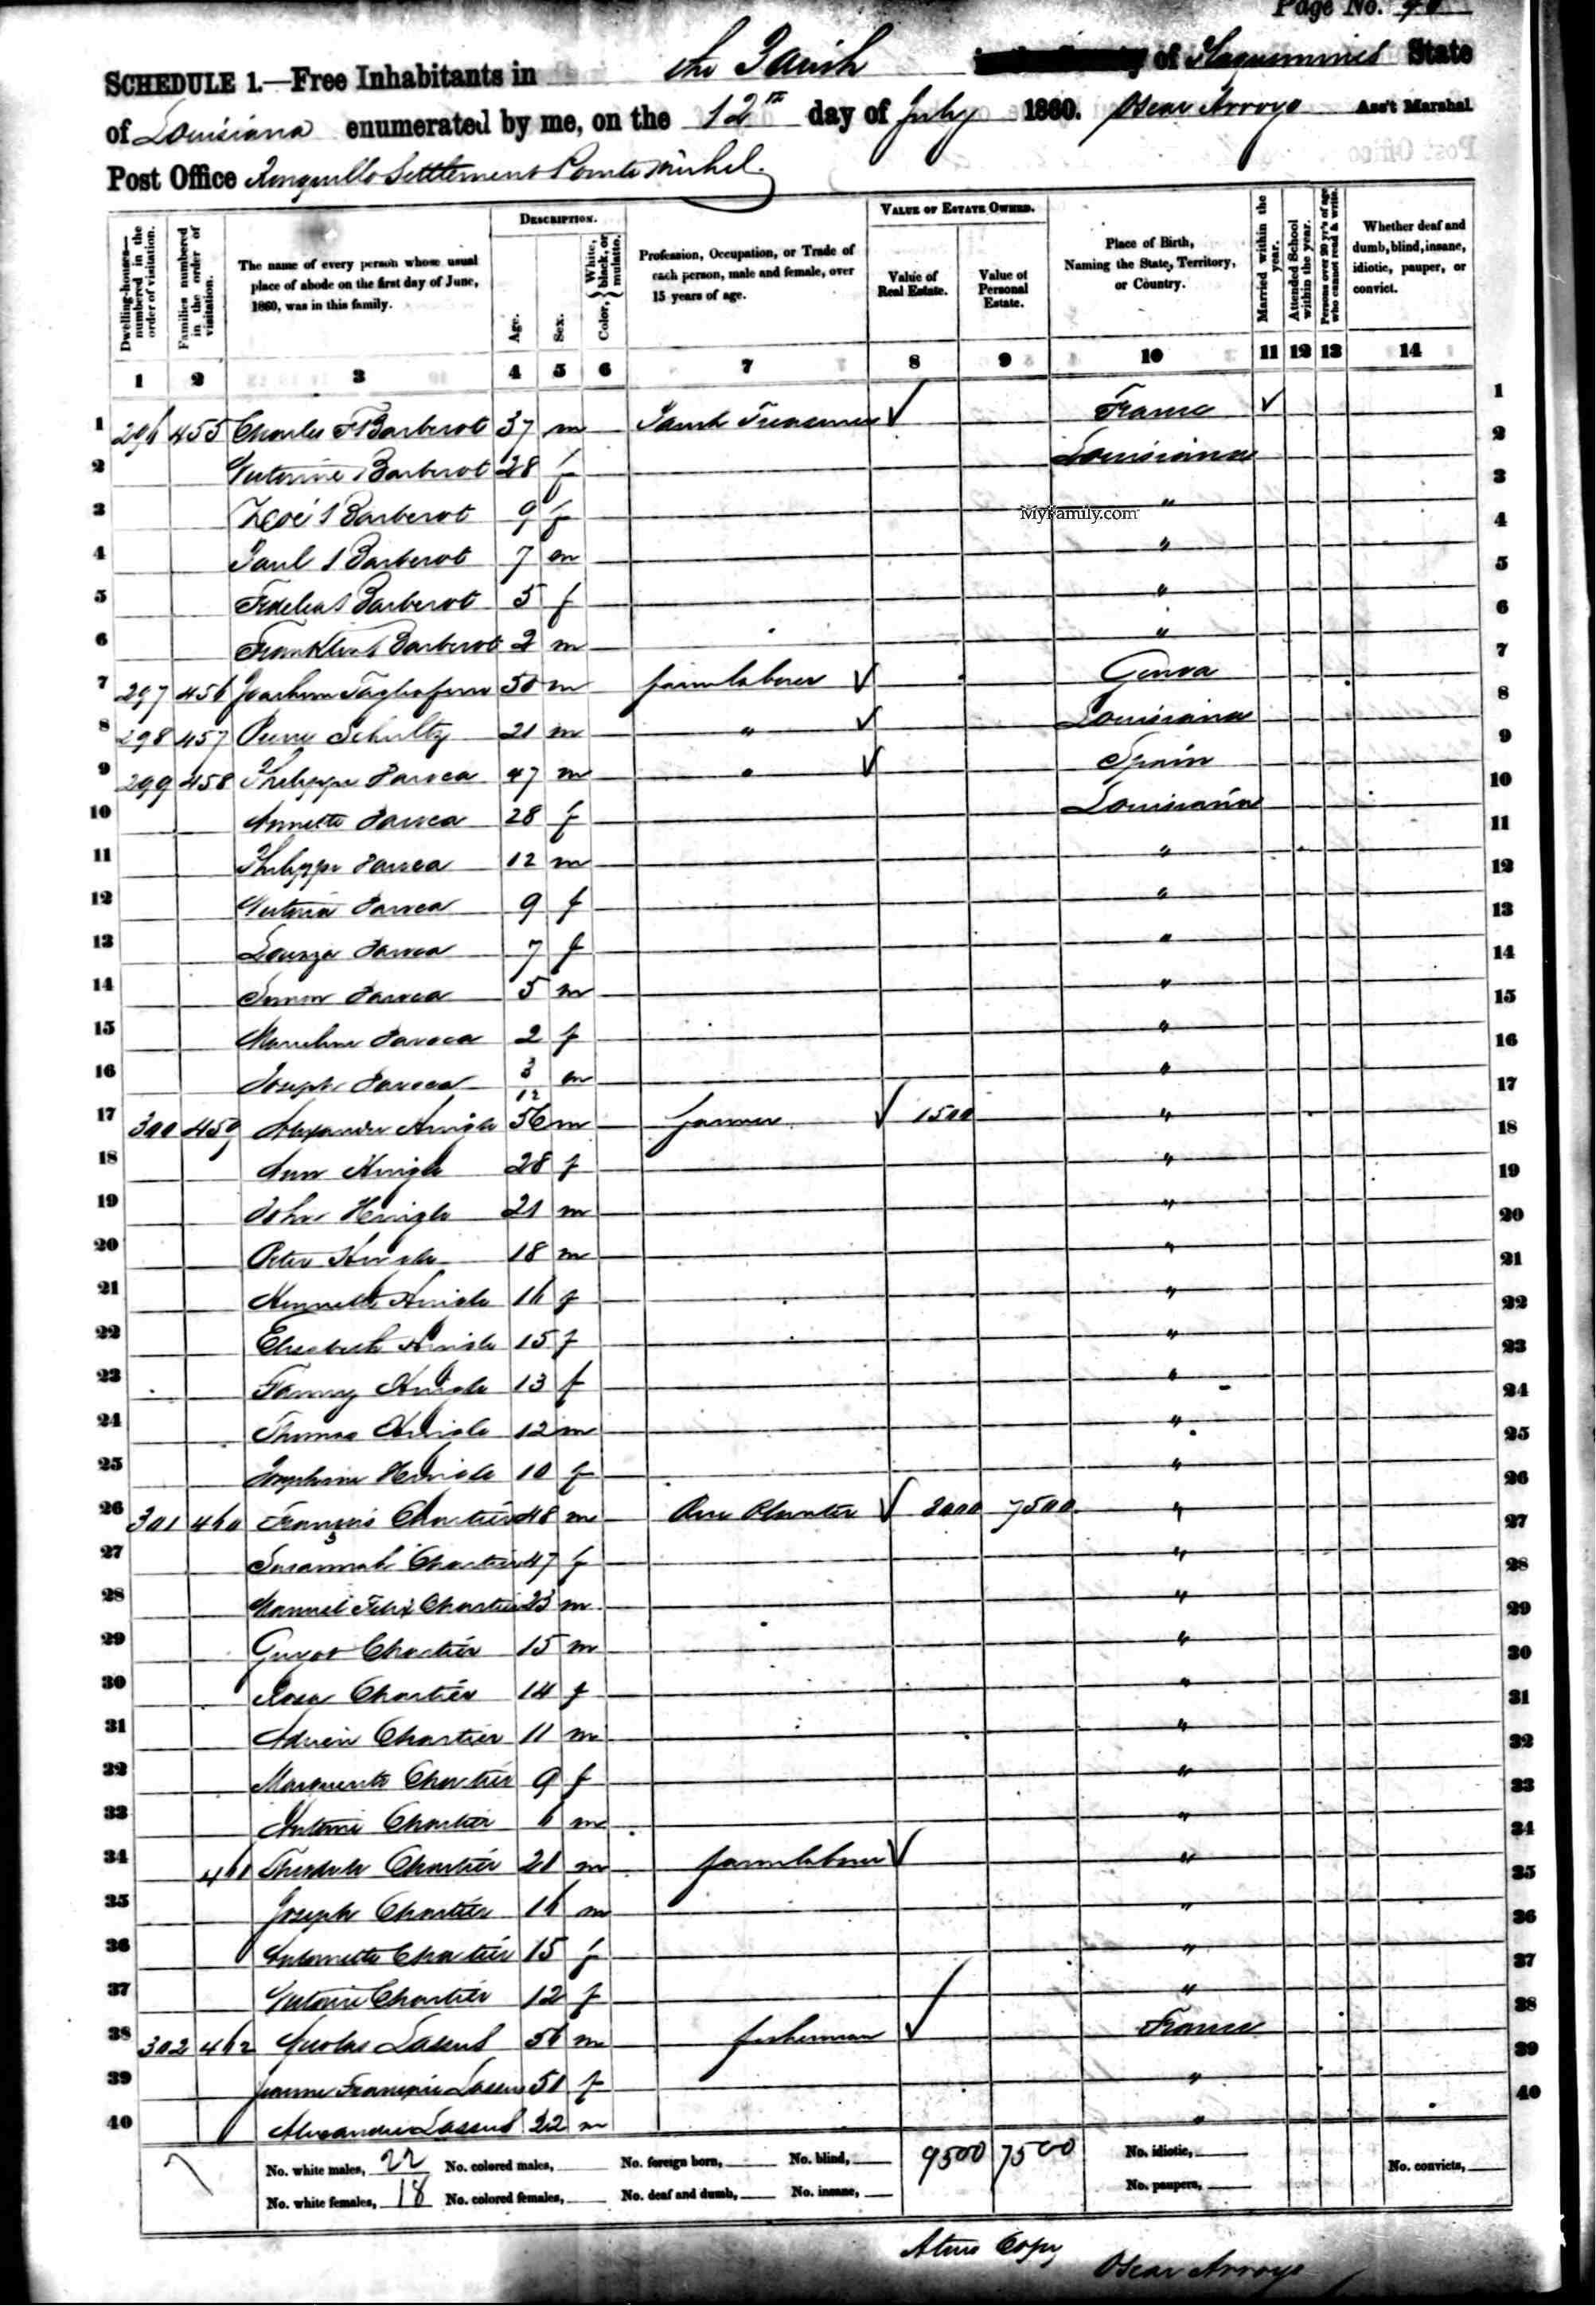 Page No.
SCHEDULE 1.—Free Inhabitants in the Parish of Plaquemines State
of Louisiana enumerated by me, on the 12th day of July 1860. Oscar Arroyo Ass't Marshal
Post Office Ronquillo Settlement Pointe Michel.
Dwelling-houses—numbered in the order of visitation.
Families numbered in the order of visitation.
The name of every person whose usual place of abode on the first day of June, 1860, was in this family.
DESCRIPTION.
Age.
Sex.
Color, { White, black, or mulatto.
Profession, Occupation, or Trade of each person, male and female, over 15 years of age.
VALUE OF ESTATE OWNED.
Value of Real Estate.
Value of Personal Estate.
Place of Birth, Naming the State, Territory, or Country.
Married within the year.
Attended School within the year.
Persons over 20 y'rs of age who cannot read & write.
Whether deaf and dumb, blind, insane, idiotic, pauper, or convict.
1 2 3 4 5 6 7 8 9 10 11 12 13 14
1 296 455 Charles F Barberot 37 m Parish Treasurer ✓ France ✓ 1
2 Victorine Barberot 28 f Louisiana 2
3 Zoé Barberot 9 f " 3
MyFamily.com
4 Paul Barberot 7 m " 4
5 Fidelia Barberot 5 f " 5
6 Franklin Barberot 2 m " 6
7 297 456 50 m farm laborer ✓ Genoa 7
8 298 457 Pierre Schultz 21 m " ✓ Louisiana 8
9 299 458 Philippe Baroca 47 m " ✓ Spain 9
10 Annette 28 f Louisiana 10
11 Philippe 12 m " 11
12 Victoria 9 f " 12
13 7 f " 13
14 Simon 5 m " 14
15 2 f " 15
16 Joseph 3/12 m " 16
17 300 459 Alexander Hingle 56 m farmer ✓ 1500 " 17
18 Ann Hingle 28 f " 18
19 John Hingle 21 m " 19
20 Peter Hingle 18 m " 20
21 Hingle 16 f " 21
22 Elisabeth Hingle 15 f " 22
23 Fanny Hingle 13 f " 23
24 Thomas Hingle 12 m " 24
25 Josephine Hingle 10 f " 25
26 301 460 François Chartier 48 m Rice Planter ✓ 7500 " 26
27 Susannah Chartier 47 f " 27
28 Manuel Felix Chartier 23 m " 28
29 Chartier 15 m " 29
30 Rosa Chartier 14 f " 30
31 Adrien Chartier 11 m " 31
32 Marguerite Chartier 9 f " 32
33 Antoine Chartier 6 m " 33
34 461 Theodule Chartier 21 m farm laborer ✓ " 34
35 Joseph Chartier 16 m " 35
36 Antoinette Chartier 15 f " 36
37 Victorie Chartier 12 f " 37
38 302 462 Nicolas Lassus 56 m fisherman ✓ France 38
39 Jeanne Françoise Lassus 51 f " 39
40 Alexandre Lassus 22 m " 40
No. white males, 22 No. colored males, No. foreign born, No. blind, 9500 7500 No. idiotic, No. convicts,
No. white females, 18 No. colored females, No. deaf and dumb, No. insane, No. paupers,
A true Copy
Oscar Arroyo